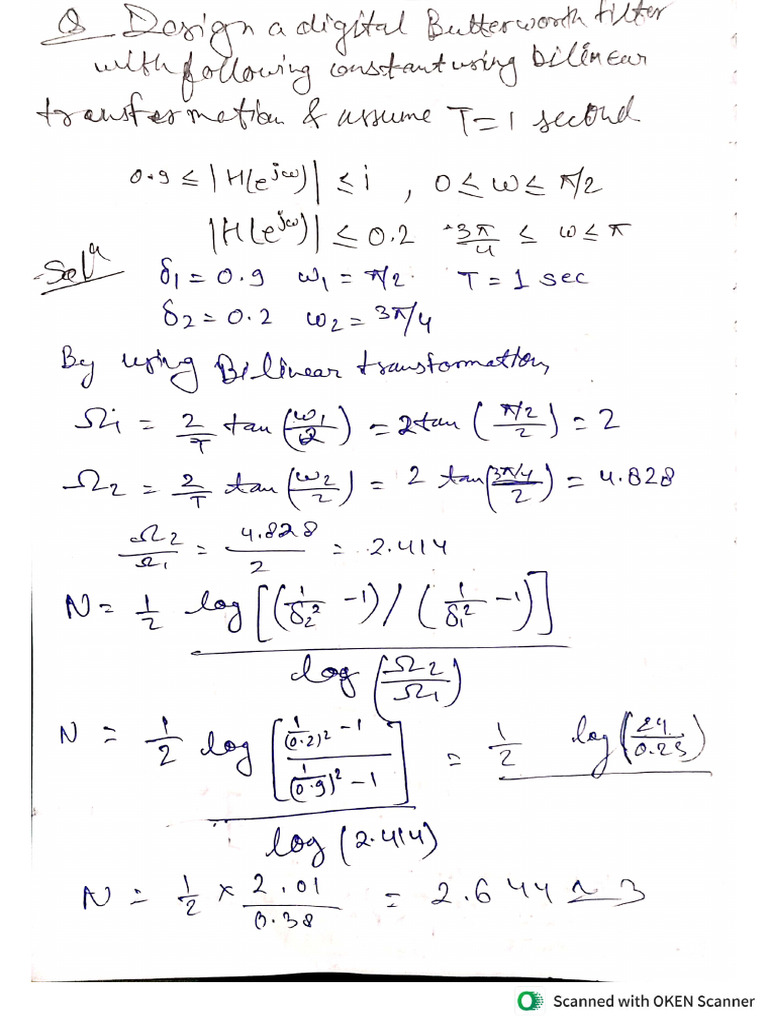 Q Design a digital Butterworth filter
with following constant using bilinear
transformation & assume T=1 second
0.9 ≤ |H(e^jω)| ≤ 1 , 0 ≤ ω ≤ π/2
|H(e^jω)| ≤ 0.2 3π/4 ≤ ω ≤ π
Solⁿ δ1 = 0.9 ω1 = π/2 T = 1 sec
δ2 = 0.2 ω2 = 3π/4
By using Bilinear transformation,
Ω1 = 2/T tan(ω1/2) = 2tan((π/2)/2) = 2
Ω2 = 2/T tan(ω2/2) = 2 tan((3π/4)/2) = 4.828
Ω2/Ω1 = 4.828/2 = 2.414
N = 1/2 log[(1/δ2² -1)/(1/δ1² -1)] / log(Ω2/Ω1)
N = 1/2 log[(1/(0.2)² -1)/(1/(0.9)² -1)] / log(2.414) = 1/2 log(24/0.23)
N = 1/2 × 2.01/0.38 = 2.644 ≃ 3
Scanned with OKEN Scanner